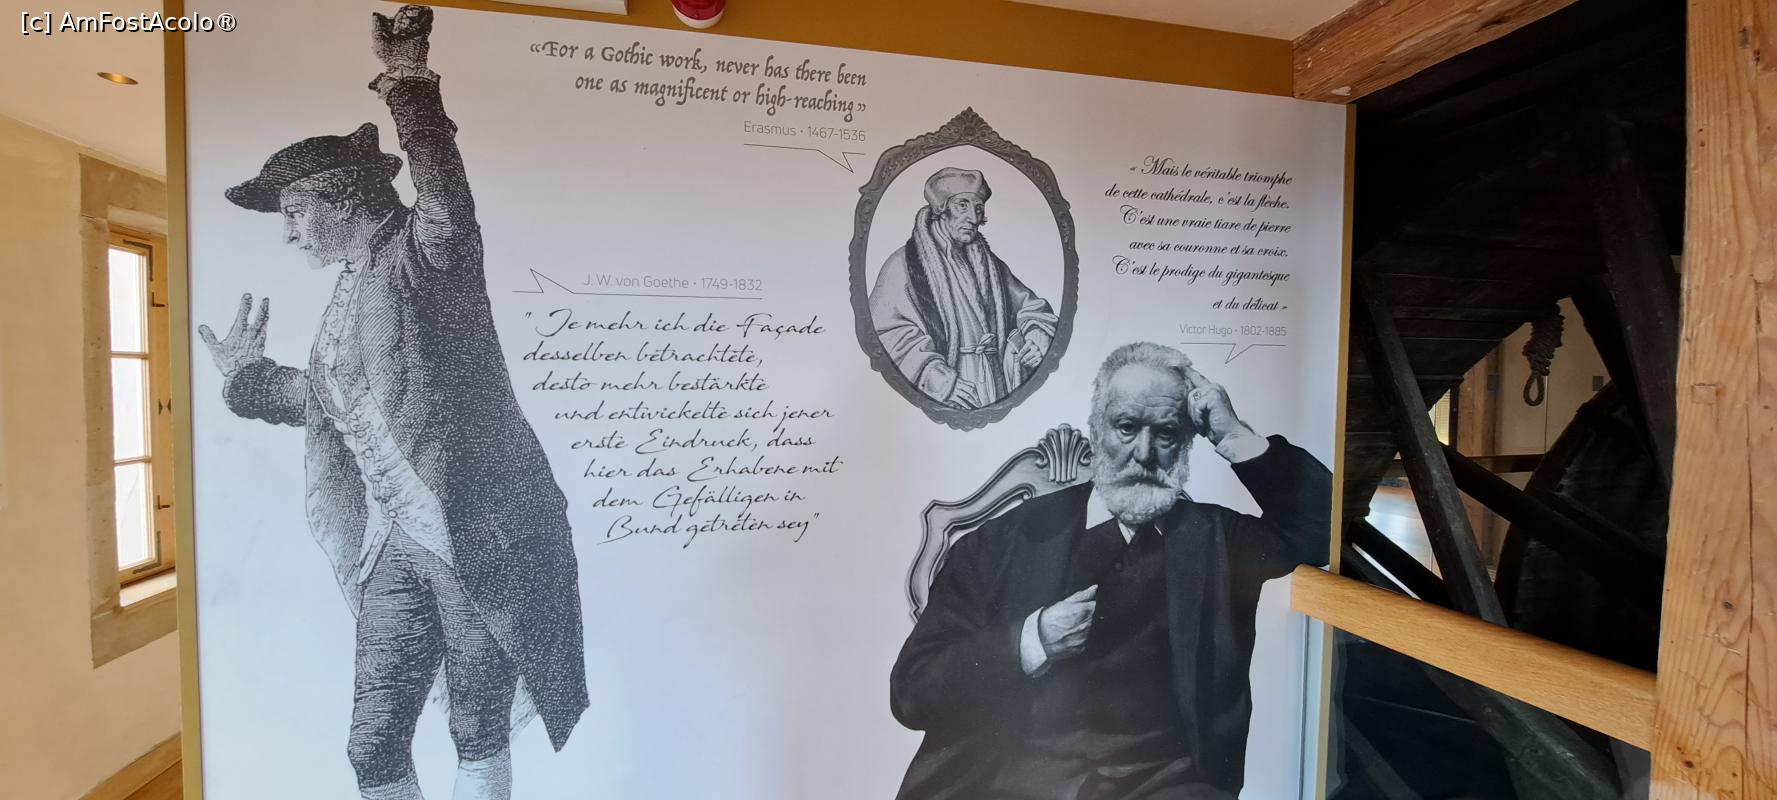 [c] AmFostAcolo®
«For a Gothic work, never has there been
one as magnificent or high-reaching»
Erasmus • 1467-1536
« Mais le véritable triomphe
de cette cathédrale, c'est la flèche.
C'est une vraie tiare de pierre
avec sa couronne et sa croix.
C'est le prodige du gigantesque
et du délicat »
Victor Hugo • 1802-1885
J. W. von Goethe • 1749-1832
"Je mehr ich die Façade
desselben betrachtete,
desto mehr bestärkte
und entwickelte sich jener
erste Eindruck, dass
hier das Erhabene mit
dem Gefälligen in
Bund getreten sey"